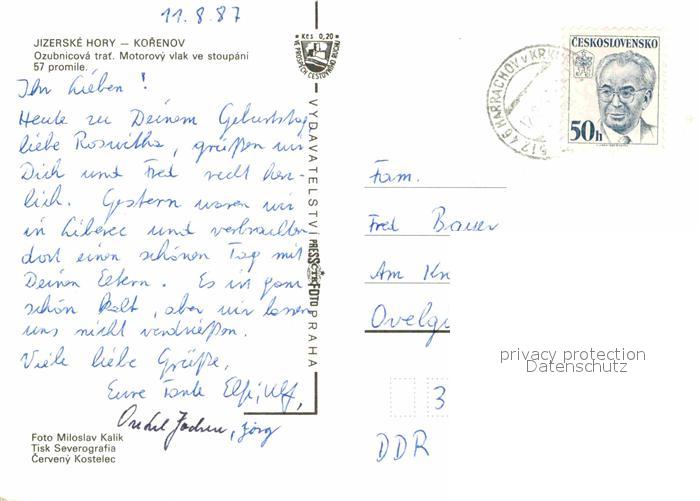 11.8.87
JIZERSKÉ HORY — KOŘENOV
Ozubnicová trať. Motorový vlak ve stoupání
57 promile.
Ihr Lieben!
Heute zu Deinem Geburtstag,
liebe Roswitha, grüßen wir
Dich und Fred recht herz-
lich. Gestern waren wir
in Liberec und verbrachten
dort einen schönen Tag mit
Deinen Eltern. Es ist ganz
schön kalt, aber wir lassen
uns nicht verdrießen.
Viele liebe Grüße,
Eure Tante Elfi, Ulf,
Onkel Jochen, Jörg
Foto Miloslav Kalík
Tisk Severografia
Červený Kostelec
Kčs 0,20
VE PROSPĚCH CESTOVNÍHO RUCHU
VYDAVATELSTVÍ PRESSFOTO PRAHA
512 46 HARRACHOV V KRK
ČESKOSLOVENSKO
50h
Fam.
Fred Bauer
Am Kn
Ovelgü
3
DDR
privacy protection
Datenschutz